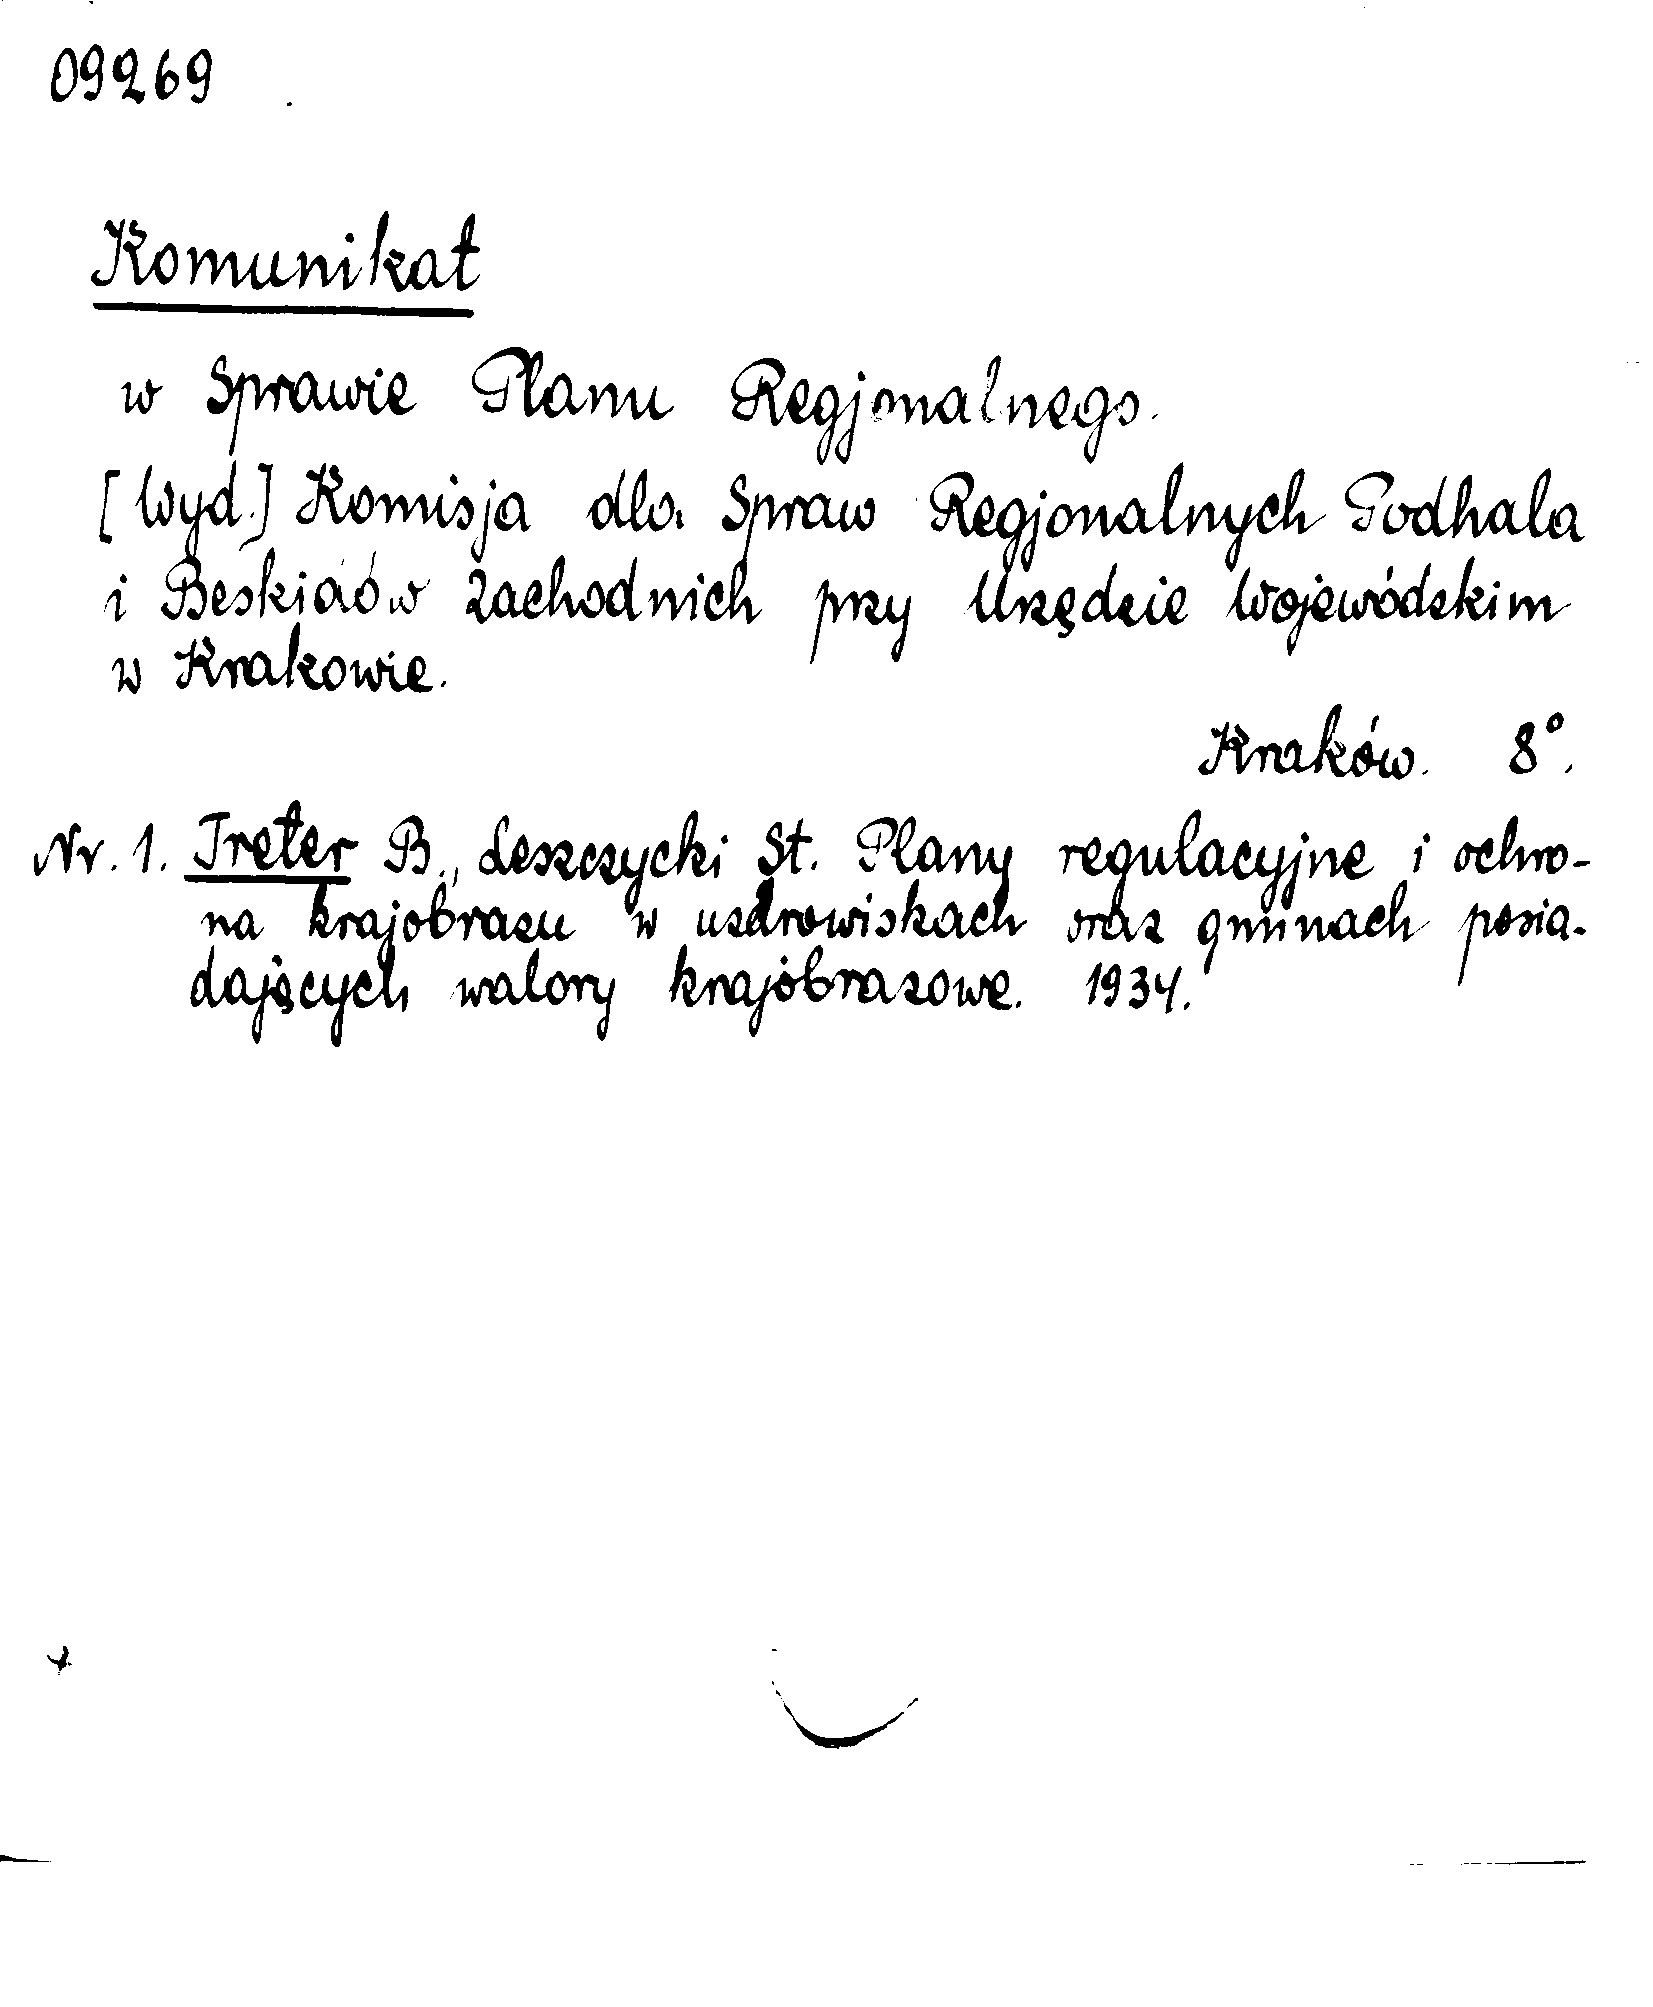 09269
Komunikat
w Sprawie Planu Regjonalnego.
[Wyd.] Komisja dla Spraw Regjonalnych Podhala
i Beskidów Zachodnich przy Urzędzie Wojewódzkim
w Krakowie.
Kraków. 8°.
Nr. 1. Treter B., Leszczycki St. Plany regulacyjne i ochro-
na krajobrazu w uzdrowiskach oraz gminach posia-
dających walory krajobrazowe. 1934.